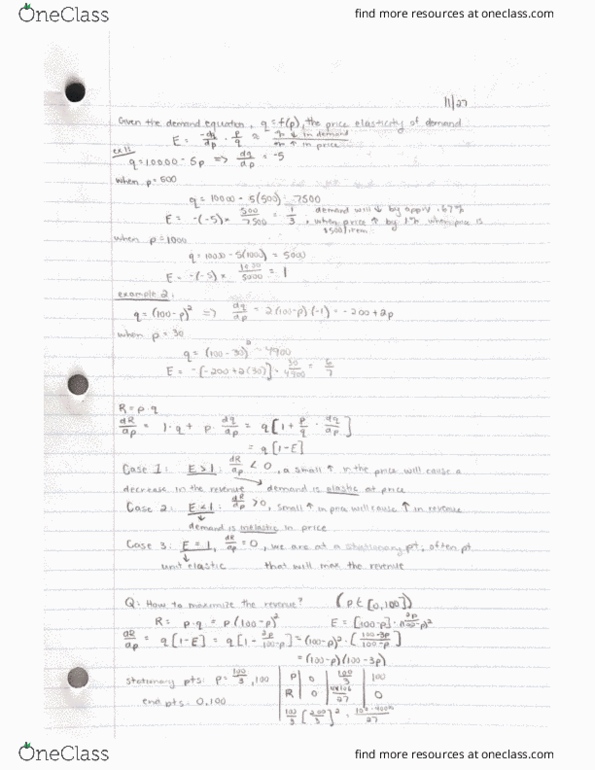 OneClass
find more resources at oneclass.com
11/27
Given the demand equation, q = f(p), the price elasticity of demand
E = -dq/dp · p/q ≈ % ↓ in demand / % ↑ in price
ex 1:
q = 10000 - 5p => dq/dp = -5
when p = 500
q = 10000 - 5(500) = 7500
E = -(-5) × 500/7500 = 1/3, demand will ↓ by
when price ↑ by 1% when price is
$500/item
when p = 1000
q = 10000 - 5(1000) = 5000
E = -(-5) × 1000/5000 = 1
example 2:
q = (100-p)² => dq/dp = 2(100-p)(-1) = -200 + 2p
when p = 30
q = (100-30)² = 4900
E = -[-200+2(30)] · 30/4900 = 6/7
R = p·q
dR/dp = 1·q + p · dq/dp = q[1 + p/q · dq/dp]
= q[1-E]
Case 1: E > 1: dR/dp < 0, a small ↑ in the price will cause a
decrease in the revenue → demand is elastic at price
Case 2: E < 1: dR/dp > 0, small ↑ in price will cause ↑ in revenue
↓ demand is inelastic in price
Case 3: E = 1, dR/dp = 0, we are at a stationary pt; often pt
↓ unit elastic that will max the revenue
Q: How to maximize the revenue? (p ∈ [0,100])
R = p·q = p(100-p)² E =
dR/dp = q[1-E] = q[1 - 2p/100-p] = (100-p)² · [100-3p/100-p]
= (100-p)(100-3p)
stationary pts: p = 100/3, 100
P | 0 | 100/3 | 100
end pts: 0, 100
R | 0 | | 0
100/3 [200/3]² =
OneClass
find more resources at oneclass.com